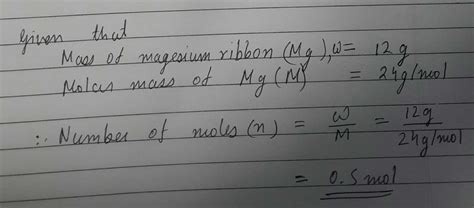 Given that
Mass of magesium ribbon (Mg), w = 12 g
Molar mass of Mg (M) = 24 g/mol
∴ Number of moles (n) = w/M = 12g/24 g/mol
= 0.5 mol